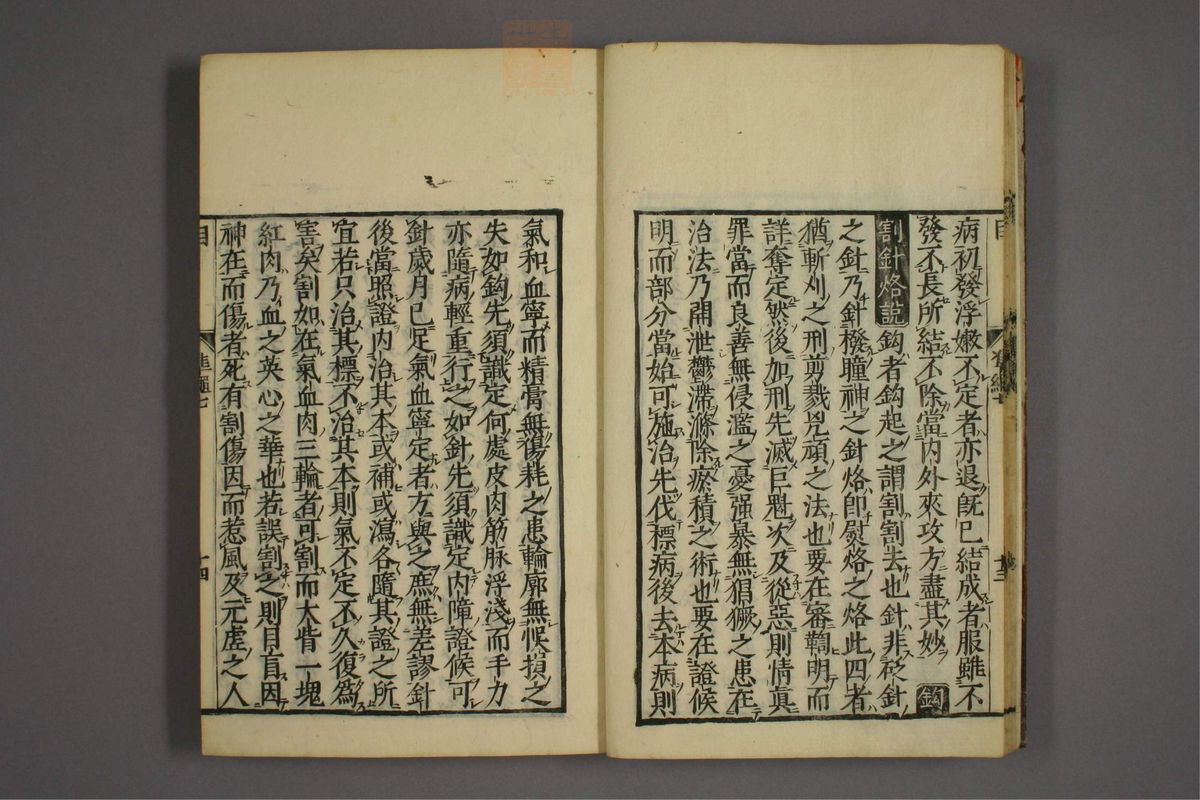 病初發浮嫩不定者亦退旣已結成者服雖不
發不長所結不除當內外夾攻方盡其妙 鈎
割針烙說 鈎者鈎起之謂割割去也針非砭針
之針乃針撥瞳神之針烙卽熨烙之烙此四者
猶斬刈之刑剪戮兇頑之法也要在審鞫明而
詳奪定然後加刑先滅巨魁次及從惡則情眞
罪當而良善無侵濫之憂强暴無猖獗之患在
治法乃開泄鬱滯滌除瘀積之術也要在證候
明而部分當始可施治先伐標病後去本病則
氣和血寧而精膏無傷耗之患輪廓無悞損之
失如鈎先須識定何處皮肉筋脉浮淺而手力
亦隨病輕重行之如針先須識定內障證候可
針歲月已足氣血寧定者方與之庶無差謬針
後當照證內治其本或補或瀉各隨其證之所
宜若只治其標不治其本則氣不定不久復爲
害矣割如在氣血肉三輪者可割而大眥一塊
紅肉乃血之英心之華也若誤割之則目盲因
神在而傷者死有割傷因而惹風及元虛之人